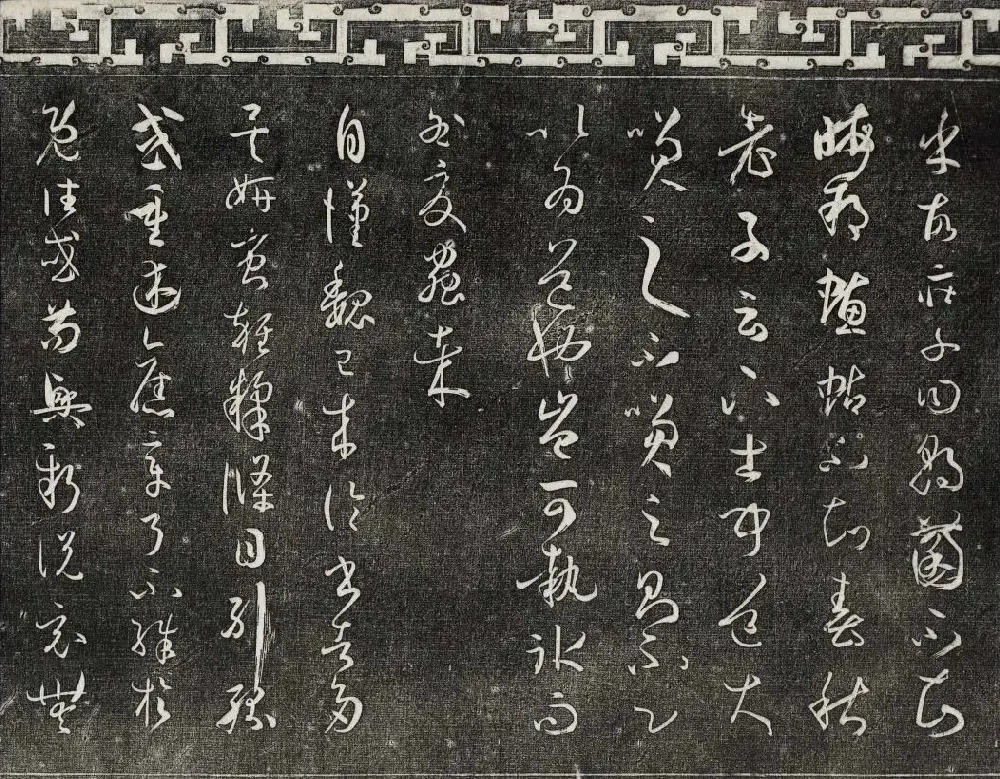 乎故莊子曰朝菌不知
晦朔蟪蛄不知春秋
老子云下士聞道大
笑之不笑之則不足
以為道也豈可執氷而
咎夏蟲哉
自漢魏已來論書者多
矣妍蚩雜糅條目糾紛
或重述舊章了不殊於
既往或苟興新說竟無